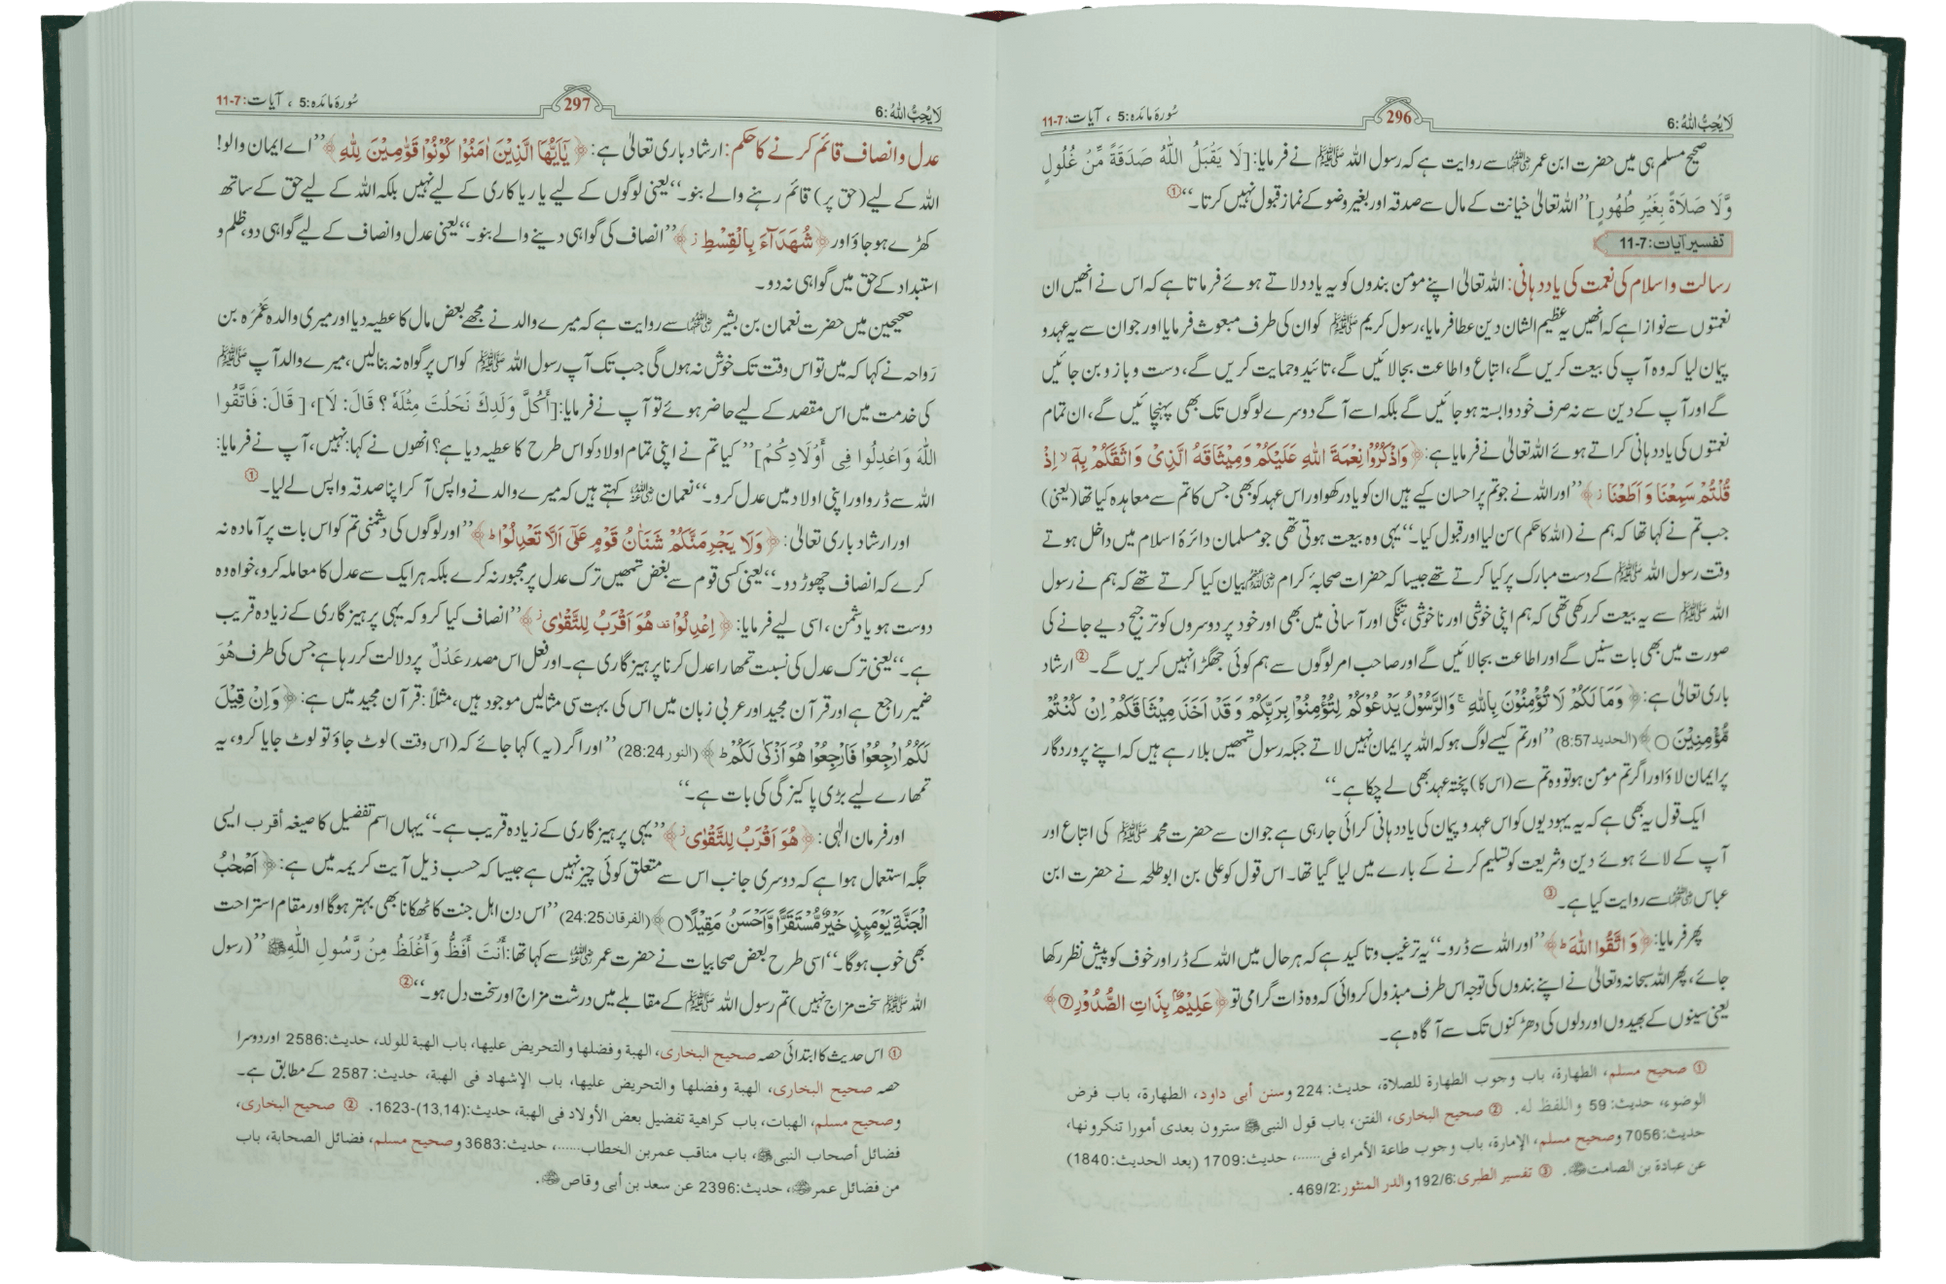 لَا يُحِبُّ اللّٰهُ:6
296
سُورۂ مائدہ:5 ، آیات:7-11
صحیح مسلم ہی میں حضرت ابن عمر رضی اللہ عنہما سے روایت ہے کہ رسول اللہ ﷺ نے فرمایا: [لَا يَقْبَلُ اللّٰهُ صَدَقَةً مِّنْ غُلُولٍ
وَّلَا صَلَاةً بِغَيْرِ طُهُورٍ] ”اللہ تعالیٰ خیانت کے مال سے صدقہ اور بغیر وضو کے نماز قبول نہیں کرتا۔“①
تفسیر آیات:7-11
رسالت و اسلام کی نعمت کی یاددہانی: اللہ تعالیٰ اپنے مومن بندوں کو یہ یاد دلاتے ہوئے فرماتا ہے کہ اس نے انھیں ان
نعمتوں سے نوازا ہے کہ انھیں یہ عظیم الشان دین عطا فرمایا، رسول کریم ﷺ کو ان کی طرف مبعوث فرمایا اور جو ان سے یہ عہد و
پیمان لیا کہ وہ آپ کی بیعت کریں گے، اتباع و اطاعت بجا لائیں گے، تائید و حمایت کریں گے، دست و بازو بن جائیں
گے اور آپ کے دین سے نہ صرف خود وابستہ ہو جائیں گے بلکہ اسے آگے دوسرے لوگوں تک بھی پہنچائیں گے، ان تمام
نعمتوں کی یاددہانی کراتے ہوئے اللہ تعالیٰ نے فرمایا ہے: ﴿وَاذْكُرُوْا نِعْمَةَ اللّٰهِ عَلَيْكُمْ وَمِيْثَاقَهُ الَّذِيْ وَاثَقَكُمْ بِهٖٓ ۙ اِذْ
قُلْتُمْ سَمِعْنَا وَ اَطَعْنَا ۡ﴾ ”اور اللہ نے جو تم پر احسان کیے ہیں ان کو یاد رکھو اور اس عہد کو بھی جس کا تم سے معاہدہ کیا تھا (یعنی)
جب تم نے کہا تھا کہ ہم نے (اللہ کا حکم) سن لیا اور قبول کیا۔“ یہی وہ بیعت ہوتی تھی جو مسلمان دائرۂ اسلام میں داخل ہوتے
وقت رسول اللہ ﷺ کے دست مبارک پر کیا کرتے تھے جیسا کہ حضرات صحابۂ کرام رضی اللہ عنہم بیان کیا کرتے تھے کہ ہم نے رسول
اللہ ﷺ سے یہ بیعت کر رکھی تھی کہ ہم اپنی خوشی اور ناخوشی، تنگی اور آسانی میں بھی اور خود پر دوسروں کو ترجیح دیے جانے کی
صورت میں بھی بات سنیں گے اور اطاعت بجا لائیں گے اور صاحب امر لوگوں سے ہم کوئی جھگڑا نہیں کریں گے۔② ارشاد
باری تعالیٰ ہے: ﴿وَمَا لَكُمْ لَا تُؤْمِنُوْنَ بِاللّٰهِ ۚ وَالرَّسُوْلُ يَدْعُوْكُمْ لِتُؤْمِنُوْا بِرَبِّكُمْ وَقَدْ اَخَذَ مِيْثَاقَكُمْ اِنْ كُنْتُمْ
مُّؤْمِنِيْنَ ○﴾ (الحديد 8:57) ”اور تم کیسے لوگ ہو کہ اللہ پر ایمان نہیں لاتے جبکہ رسول تمھیں بلا رہے ہیں کہ اپنے پروردگار
پر ایمان لاؤ اور اگر تم مومن ہو تو وہ تم سے (اس کا) پختہ عہد بھی لے چکا ہے۔“
ایک قول یہ بھی ہے کہ یہ یہودیوں کو اس عہد و پیمان کی یاددہانی کرائی جا رہی ہے جو ان سے حضرت محمد ﷺ کی اتباع اور
آپ کے لائے ہوئے دین و شریعت کو تسلیم کرنے کے بارے میں لیا گیا تھا۔ اس قول کو علی بن ابوطلحہ نے حضرت ابن
عباس رضی اللہ عنہما سے روایت کیا ہے۔③
پھر فرمایا: ﴿وَ اتَّقُوا اللّٰهَ ؕ﴾ ”اور اللہ سے ڈرو۔“ یہ ترغیب و تاکید ہے کہ ہر حال میں اللہ کے ڈر اور خوف کو پیش نظر رکھا
جائے، پھر اللہ سبحانہ وتعالیٰ نے اپنے بندوں کی توجہ اس طرف مبذول کروائی کہ وہ ذات گرامی تو ﴿عَلِيْمٌۢ بِذَاتِ الصُّدُوْرِ ⑦﴾
یعنی سینوں کے بھیدوں اور دلوں کی دھڑکنوں تک سے آگاہ ہے۔
① صحیح مسلم، الطهارة، باب وجوب الطهارة للصلاة، حديث: 224 وسنن أبی داود، الطهارة، باب فرض
الوضوء، حديث: 59 واللفظ له. ② صحیح البخاری، الفتن، باب قول النبی ﷺ سترون بعدی أمورا تنكرونها،
حديث:7056 وصحیح مسلم، الإمارة، باب وجوب طاعة الأمراء فی......، حديث:1709 (بعد الحديث:1840)
عن عبادة بن الصامت رضی اللہ عنہ. ③ تفسیر الطبری:192/6 والدر المنثور:469/2.
لَا يُحِبُّ اللّٰهُ:6
297
سُورۂ مائدہ:5 ، آیات:7-11
عدل و انصاف قائم کرنے کا حکم: ارشاد باری تعالیٰ ہے: ﴿يٰٓاَيُّهَا الَّذِيْنَ اٰمَنُوْا كُوْنُوْا قَوّٰمِيْنَ لِلّٰهِ﴾ ”اے ایمان والو!
اللہ کے لیے (حق پر) قائم رہنے والے بنو۔“ یعنی لوگوں کے لیے یا ریاکاری کے لیے نہیں بلکہ اللہ کے لیے حق کے ساتھ
کھڑے ہو جاؤ اور ﴿شُهَدَآءَ بِالْقِسْطِ ۡ﴾ ”انصاف کی گواہی دینے والے بنو۔“ یعنی عدل و انصاف کے لیے گواہی دو، ظلم و
استبداد کے حق میں گواہی نہ دو۔
صحیحین میں حضرت نعمان بن بشیر رضی اللہ عنہما سے روایت ہے کہ میرے والد نے مجھے بعض مال کا عطیہ دیا اور میری والدہ عَمْرَہ بن
رَواحہ نے کہا کہ میں تو اس وقت تک خوش نہ ہوں گی جب تک آپ رسول اللہ ﷺ کو اس پر گواہ نہ بنا لیں، میرے والد آپ ﷺ
کی خدمت میں اس مقصد کے لیے حاضر ہوئے تو آپ نے فرمایا: [أَكُلَّ وَلَدِكَ نَحَلْتَ مِثْلَهٗ ؟ قَالَ: لَا]، [قَالَ: فَاتَّقُوا
اللّٰهَ وَاعْدِلُوا فِی أَوْلَادِكُمْ] ”کیا تم نے اپنی تمام اولاد کو اس طرح کا عطیہ دیا ہے؟ انھوں نے کہا: نہیں، آپ نے فرمایا:
اللہ سے ڈرو اور اپنی اولاد میں عدل کرو۔“ نعمان رضی اللہ عنہ کہتے ہیں کہ میرے والد نے واپس آ کر اپنا صدقہ واپس لے لیا۔①
اور ارشاد باری تعالیٰ: ﴿وَلَا يَجْرِمَنَّكُمْ شَنَاٰنُ قَوْمٍ عَلٰٓى اَلَّا تَعْدِلُوْا ؕ﴾ ”اور لوگوں کی دشمنی تم کو اس بات پر آمادہ نہ
کرے کہ انصاف چھوڑ دو۔“ یعنی کسی قوم سے بغض تمھیں ترک عدل پر مجبور نہ کرے بلکہ ہر ایک سے عدل کا معاملہ کرو، خواہ وہ
دوست ہو یا دشمن، اسی لیے فرمایا: ﴿اِعْدِلُوْا ۫ هُوَ اَقْرَبُ لِلتَّقْوٰى ۡ﴾ ”انصاف کیا کرو کہ یہی پرہیزگاری کے زیادہ قریب
ہے۔“ یعنی ترک عدل کی نسبت تمھارا عدل کرنا پرہیزگاری ہے۔ اور فعل اس مصدر عَدْلٌ پر دلالت کر رہا ہے جس کی طرف هُوَ
ضمیر راجع ہے اور قرآن مجید اور عربی زبان میں اس کی بہت سی مثالیں موجود ہیں، مثلاً: قرآن مجید میں ہے: ﴿وَاِنْ قِيْلَ
لَكُمُ ارْجِعُوْا فَارْجِعُوْا هُوَ اَزْكٰى لَكُمْ ؕ﴾ (النور 28:24) ”اور اگر (یہ) کہا جائے کہ (اس وقت) لوٹ جاؤ تو لوٹ جایا کرو، یہ
تمھارے لیے بڑی پاکیزگی کی بات ہے۔“
اور فرمان الٰہی: ﴿هُوَ اَقْرَبُ لِلتَّقْوٰى ۡ﴾ ”یہی پرہیزگاری کے زیادہ قریب ہے۔“ یہاں اسم تفضیل کا صیغہ أقرب ایسی
جگہ استعمال ہوا ہے کہ دوسری جانب اس سے متعلق کوئی چیز نہیں ہے جیسا کہ حسب ذیل آیت کریمہ میں ہے: ﴿اَصْحٰبُ
الْجَنَّةِ يَوْمَىِٕذٍ خَيْرٌ مُّسْتَقَرًّا وَّاَحْسَنُ مَقِيْلًا ○﴾ (الفرقان 24:25) ”اس دن اہل جنت کا ٹھکانا بھی بہتر ہوگا اور مقام استراحت
بھی خوب ہوگا۔“ اسی طرح بعض صحابیات نے حضرت عمر رضی اللہ عنہ سے کہا تھا: أَنْتَ أَفَظُّ وَأَغْلَظُ مِنْ رَّسُولِ اللّٰهِ ﷺ ”(رسول
اللہ ﷺ سخت مزاج نہیں) تم رسول اللہ ﷺ کے مقابلے میں درشت مزاج اور سخت دل ہو۔“②
① اس حدیث کا ابتدائی حصہ صحیح البخاری، الهبة وفضلها والتحریض علیها، باب الهبة للولد، حدیث:2586 اور دوسرا
حصہ صحیح البخاری، الهبة وفضلها والتحریض علیها، باب الإشهاد فی الهبة، حدیث:2587 کے مطابق ہے۔
وصحیح مسلم، الهبات، باب کراهیة تفضیل بعض الأولاد فی الهبة، حدیث:(13,14)-1623. ② صحیح البخاری،
فضائل أصحاب النبی ﷺ، باب مناقب عمر بن الخطاب......، حدیث:3683 وصحیح مسلم، فضائل الصحابة، باب
من فضائل عمر رضی اللہ عنہ، حدیث:2396 عن سعد بن أبی وقاص رضی اللہ عنہ.